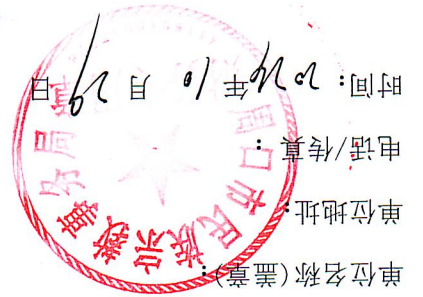 单位名称(盖章):
单位地址:
电话/传真:
时间: 2024年10月29日
口市民族宗教事务局